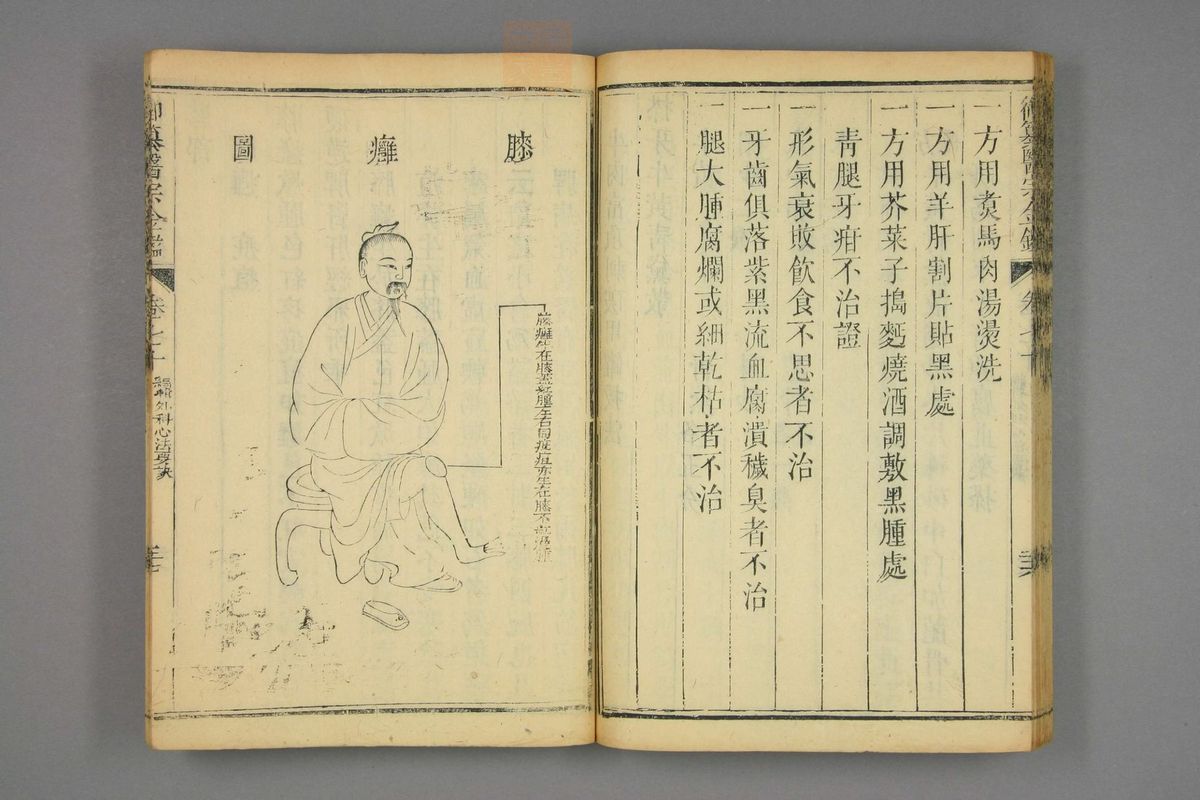 御纂醫宗金鑑 卷七十
一方用煑馬肉湯燙洗
一方用羊肝割片貼黑處
一方用芥菜子搗麪燒酒調敷黑腫處
靑腿牙疳不治證
一形氣衰敗飮食不思者不治
一牙齒俱落紫黑流血腐潰穢臭者不治
一腿大腫腐爛或細乾枯者不治
膝癰圖
膝癰生在膝蓋紅腫
疽亦生在膝
御纂醫宗金鑑 卷七十 編輯外科心法要訣